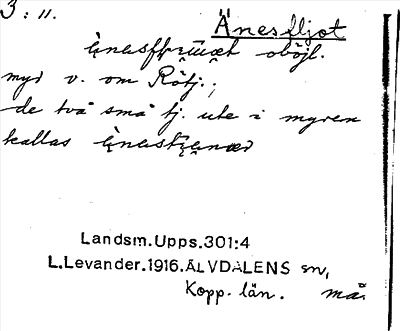 3:11.
Änesfljot
oböjl.
myr v. om Rötj.,
de två små tj. ute i myren
kallas
Landsm.Upps.301:4
L.Levander.1916.ÄLVDALENS sn,
Kopp. län. mä.